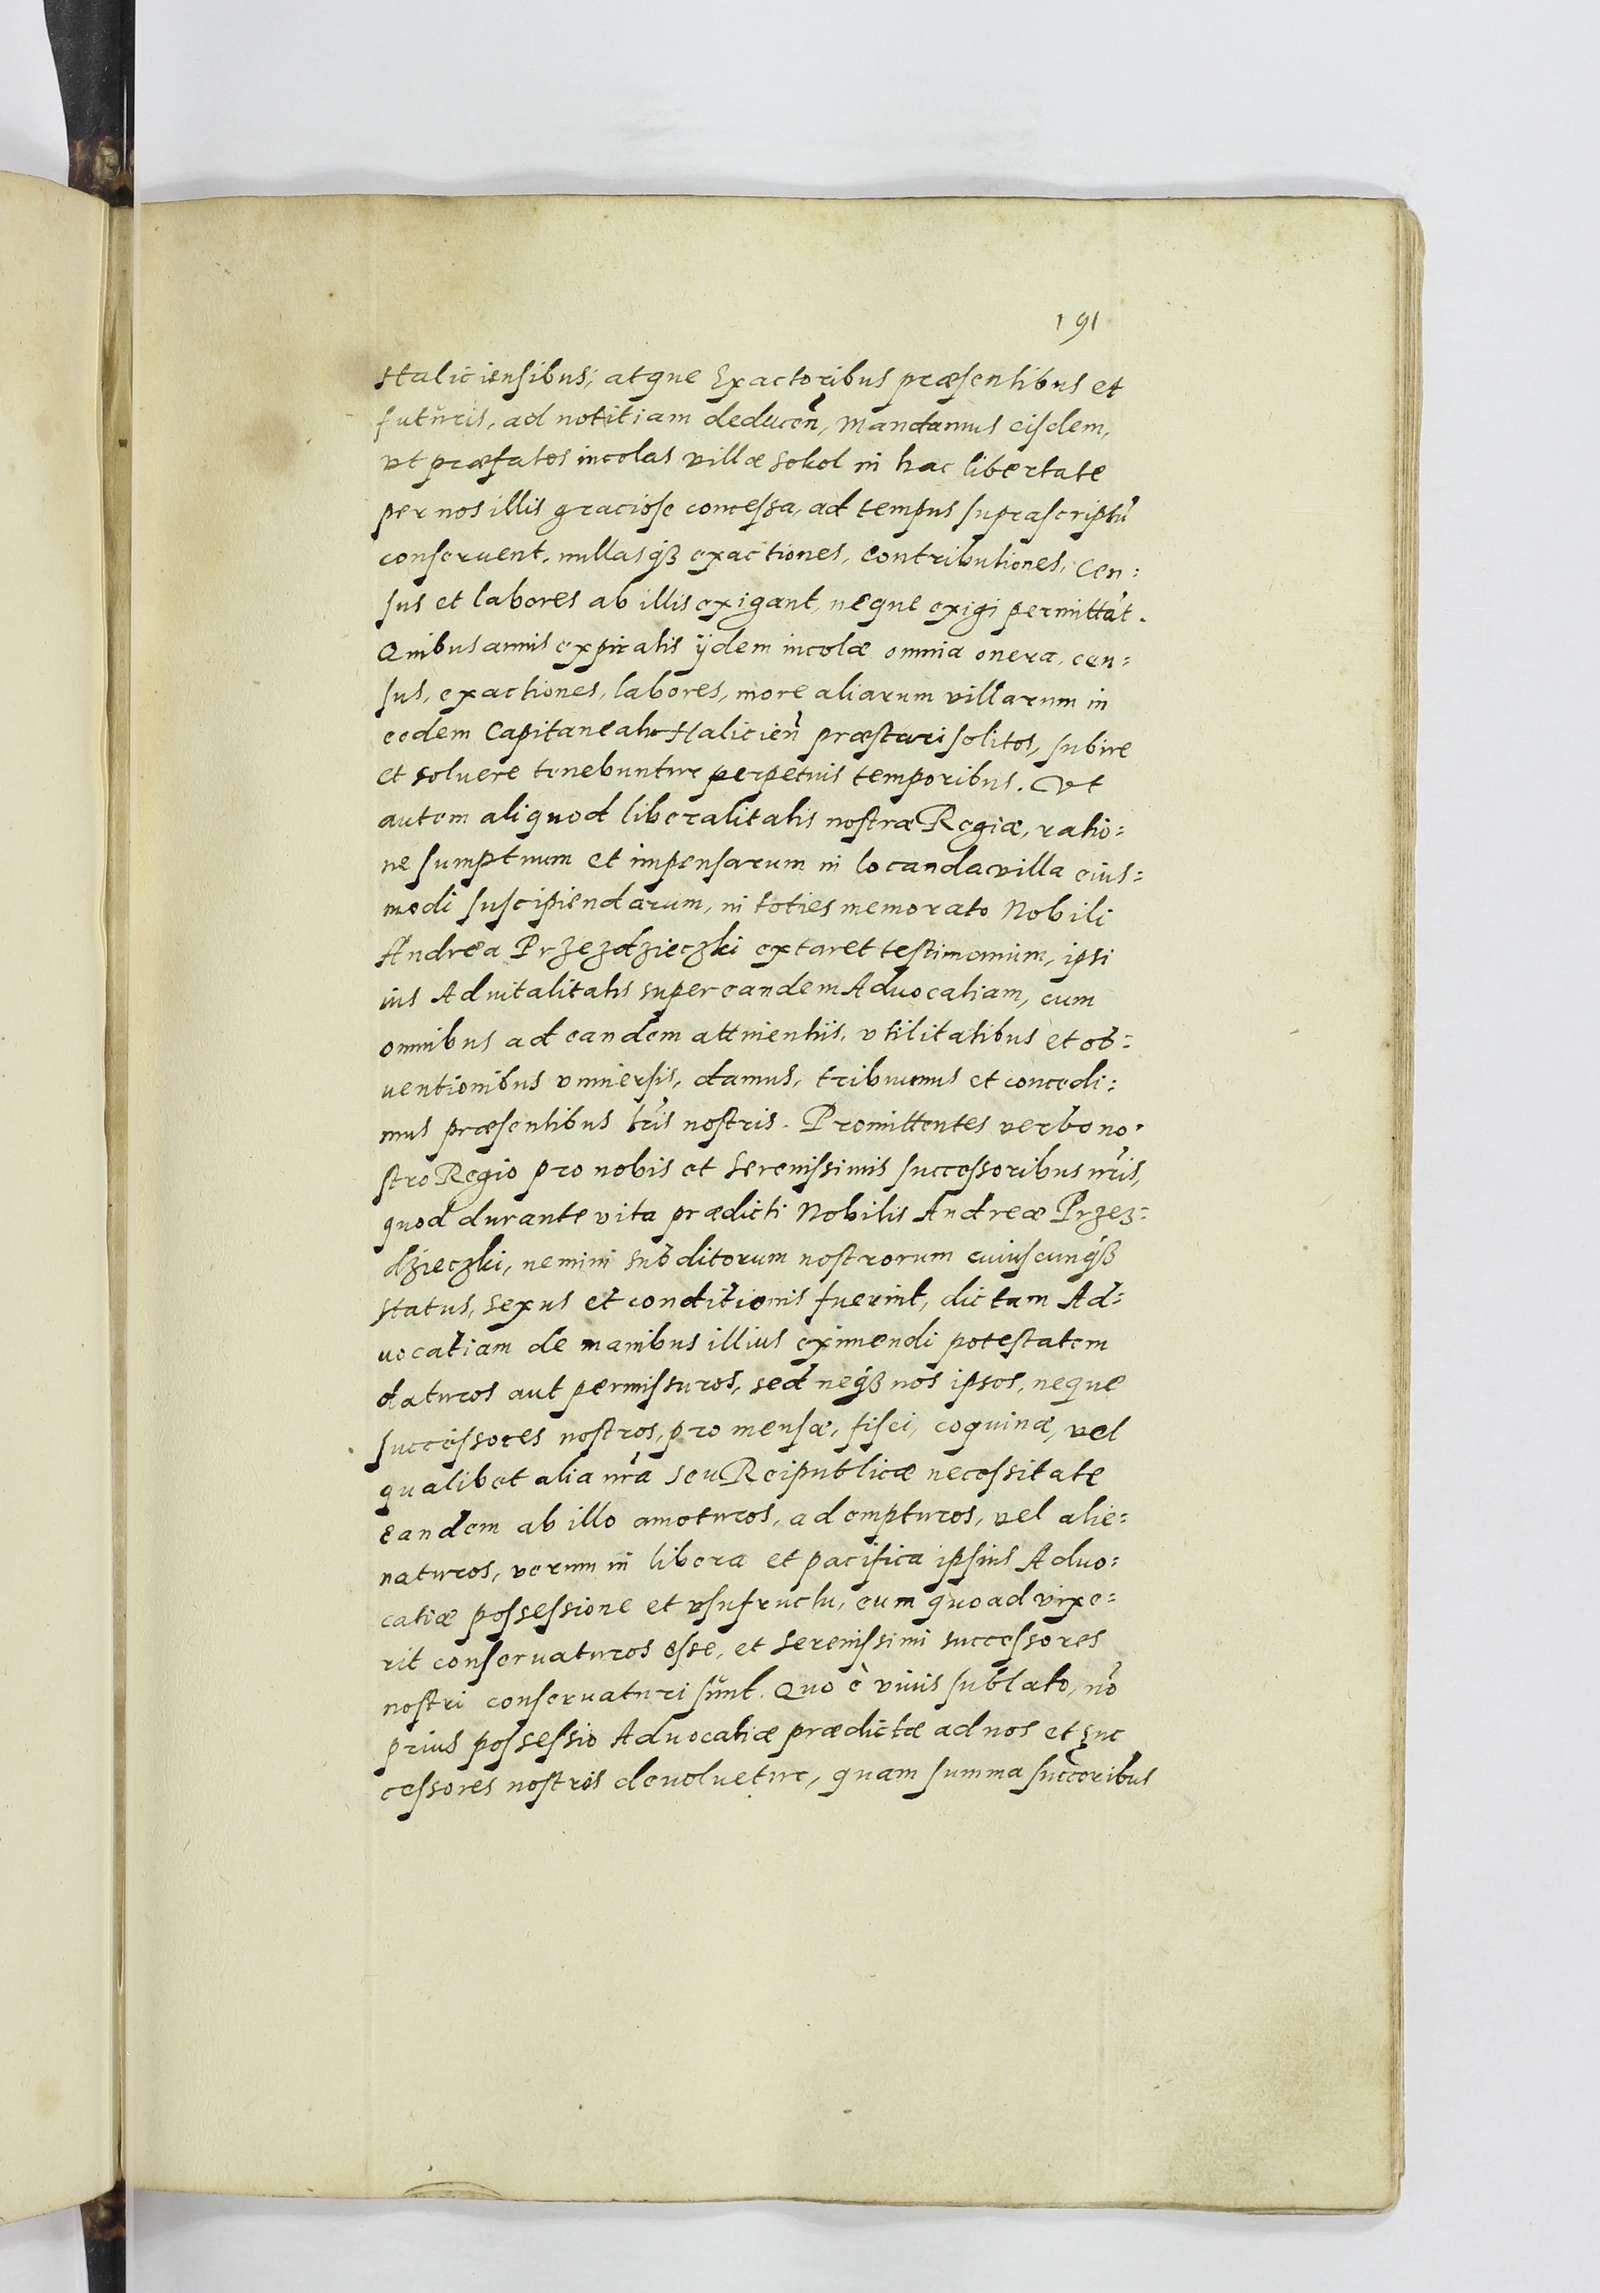 191
Haliciensibus, atque Exactoribus præsentibus et
futuris, ad notitiam deducen̄, mandamus eisdem,
vt præfatos incolas villæ Sokol in hac libertate
per nos illis graciose concessa, ad tempus suprascriptū
conseruent, nullasq₃ exactiones, contributiones, Cen=
sus et labores ab illis exigant, neque exigi permittāt.
Quibus annis expiratis ijdem incolæ omnia onera, cen=
sus, exactiones, labores, more aliarum villarum in
eodem Capitaneatu Halicien̄ præstari solitos, subire
et soluere tenebuntur perpetuis temporibus. Vt
autem aliquod liberalitatis nostræ Regiæ, ratio=
ne sumptuum et impensarum in locanda villa eius=
modi suscipiendarum, in toties memorato Nobili
Andrea Przezdzieczki extaret testimonium, ipsi
ius Aduitalitatis super eandem Aduocatiam, cum
omnibus ad eandem attinentiis, vtilitatibus et ob=
uentionibus vniuersis, damus, tribuimus et concedi=
mus præsentibus lr̄is nostris. Promittentes verbo no=
stro Regio pro nobis et Serenissimis successoribus nr̄is,
quod durante vita prædicti Nobilis Andreæ Przez=
dzieczki, nemini subditorum nostrorum cuiuscunq₃
status, sexus et conditionis fuerint, dictam Ad=
uocatiam de manibus illius eximendi potestatem
daturos aut permissuros, sed neq₃ nos ipsos, neque
successores nostros, pro mensæ, fisci, coquinæ, vel
qualibet alia nr̄a seu Reipublicæ necessitate
eandem ab illo amoturos, adempturos, vel alie=
naturos, verum in libera et pacifica ipsius Aduo=
catiæ possessione et vsufructu, eum quoad vixe=
rit conseruaturos esse, et Serenissimi successores
nostri conseruaturi sunt. Quo è viuis sublato, nō
prius possessio Aduocatiæ prædictæ ad nos et suc
cessores nostros deuoluetur, quam summa succoribus